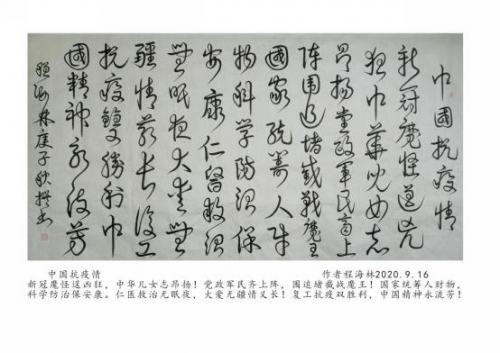 中國抗疫情
新冠魔怪逞凶
狂中華儿女志
昂扬党政軍民齐上
阵围追堵截戰魔王
國家统筹人财
物科学防治保
安康仁醫救治
無眠夜大爱無
疆情又长复工
抗疫雙勝利中
國精神永流芳
程海林庚子秋撰书
中国抗疫情 作者程海林2020.9.16
新冠魔怪逞凶狂，中华儿女志昂扬！党政军民齐上阵，围追堵截战魔王！国家统筹人财物，
科学防治保安康。仁医救治无眠夜，大爱无疆情又长！复工抗疫双胜利，中国精神永流芳！